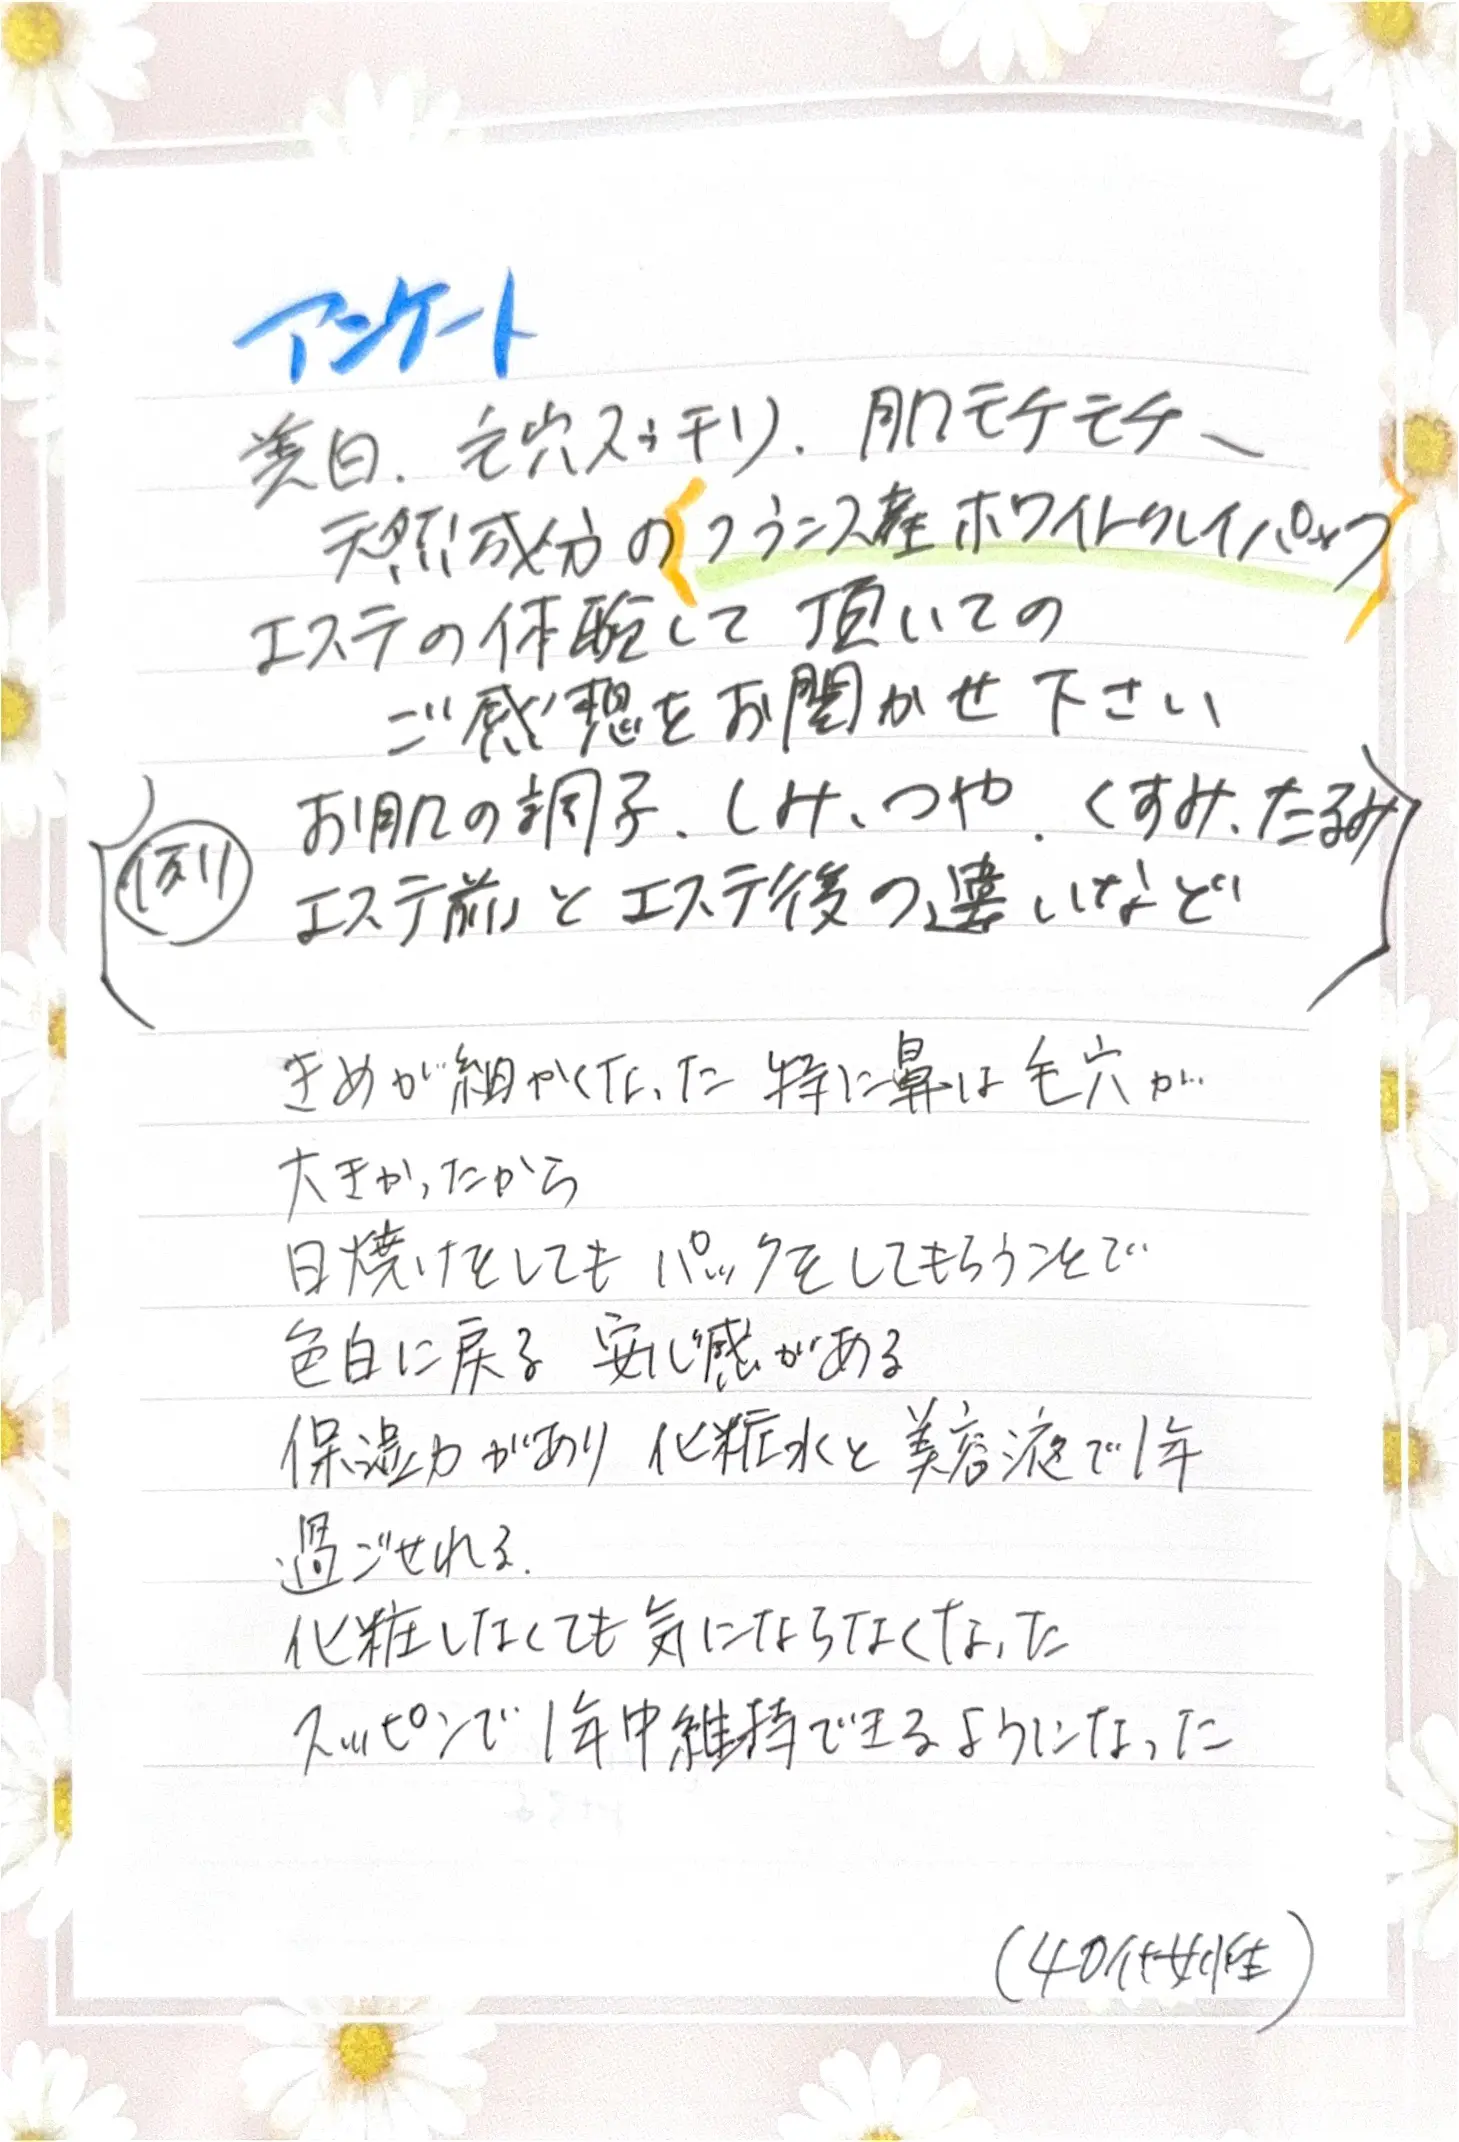 アンケート
美白、毛穴スッキリ、肌モチモチ、
天然成分の〈フランス産ホワイトクレイパック〉
エステの体験して頂いての
ご感想をお聞かせ下さい
(例) お肌の調子、しみ、つや、くすみ、たるみ
エステ前とエステ後の違いなど
きめが細かくなった 特に鼻は毛穴が
大きかったから
日焼けをしても パックをしてもらうことで
色白に戻る 安心感がある
保湿力があり 化粧水と美容液で1年
過ごせれる.
化粧しなくても気にならなくなった
スッピンで1年中維持できるようになった
(40代女性)